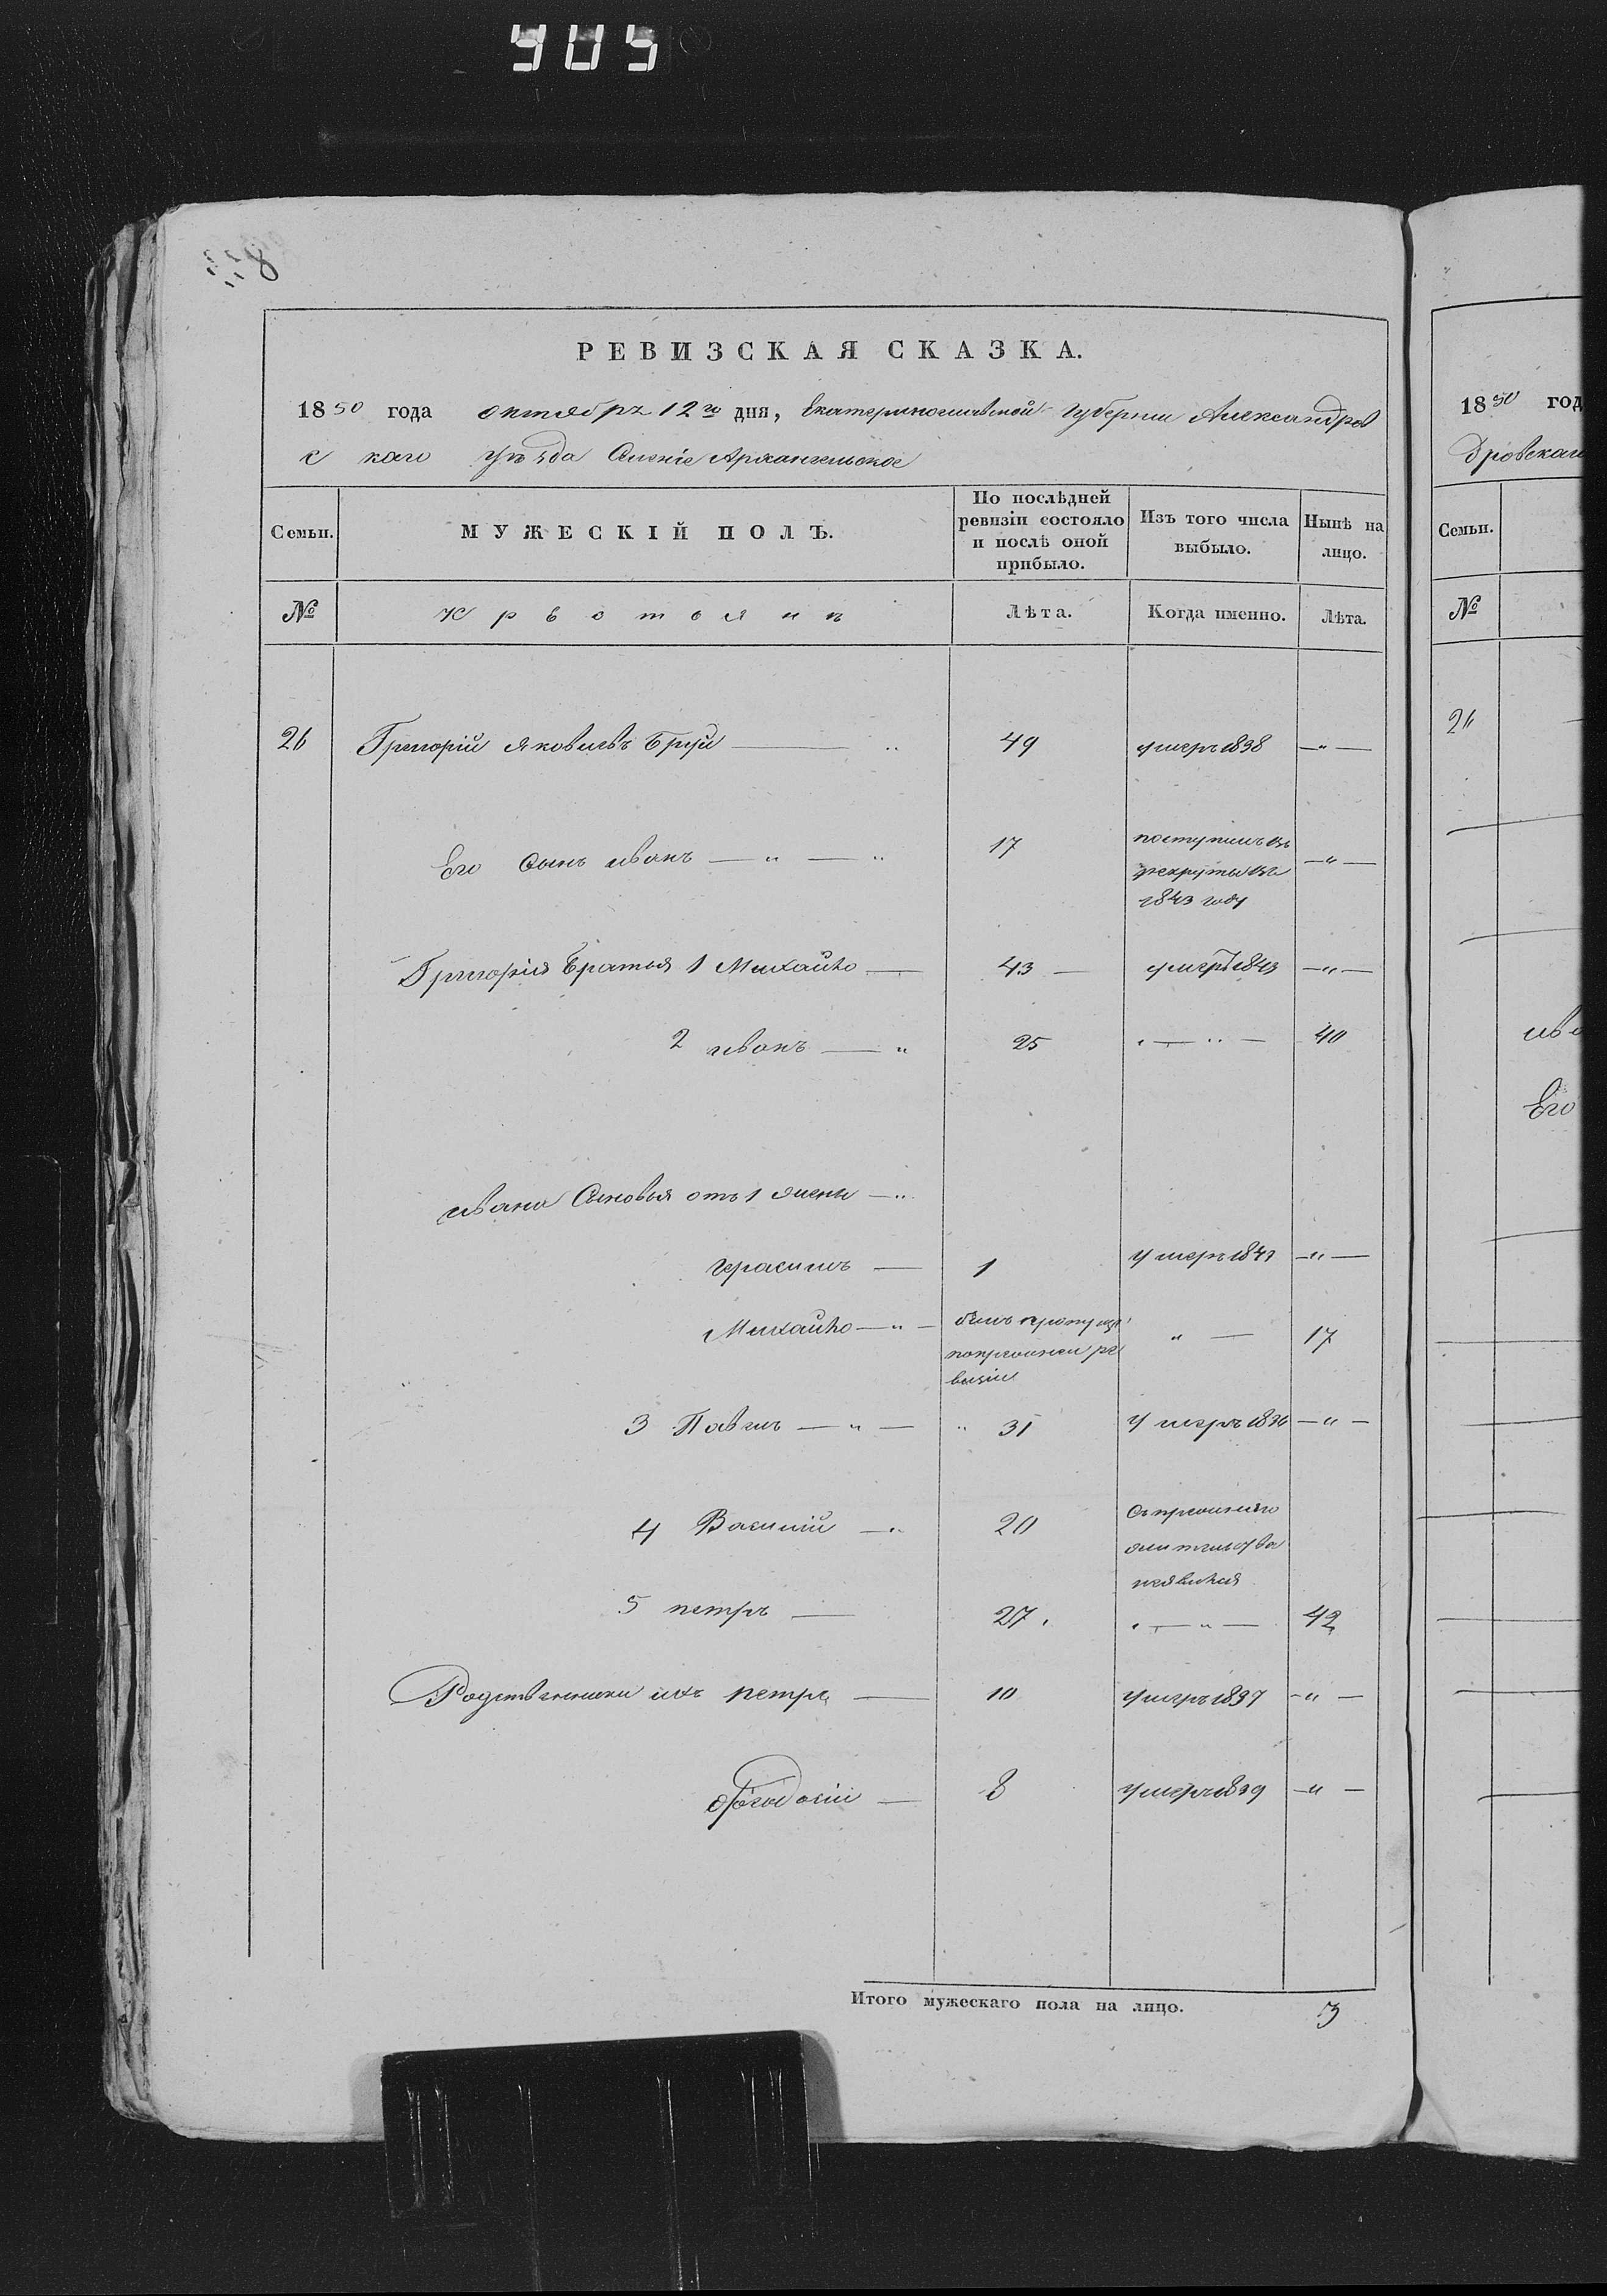 905
РЕВИЗСКАЯ СКАЗКА.
1850 года октября 12го дня, Екатеринославской Губернии Александров
с каго уѣзда Селеніе Архангельское
Семьи. МУЖЕСКІЙ ПОЛЪ. По послѣдней ревизіи состояло и послѣ оной прибыло. Изъ того числа выбыло. Ныне на лицо.
№ Лѣта. Когда именно. Лѣта.
26 Григорій Яковлевъ Бруй — 49 умеръ 1838 —"—
Его Сынъ иванъ —"—" 17 поступилъ въ рекруты въ 1843 году —"—
Григорія Братья 1 Михайло — 43 — умеръ 1843 —"—
2 иванъ —" 25 "—"— 40
ивана Сыновья отъ 1 жены —"
Герасимъ — 1 умеръ 1841 —"—
Михайло —"— былъ пропущ. по прежней ревизіи "— 17
3 Павелъ —"— " 31 умеръ 1836 —"—
4 Василій —" 20 Съ прежняго жительства неявился
5 петръ — 27. "—"— 42
Родственники ихъ петръ — 10 умеръ 1837 —"—
Феодосій — 8 умеръ 1839 —"—
Итого мужескаго пола на лицо. 3
1850 год
дровскаго
Семьи.
№
26
ива
Его